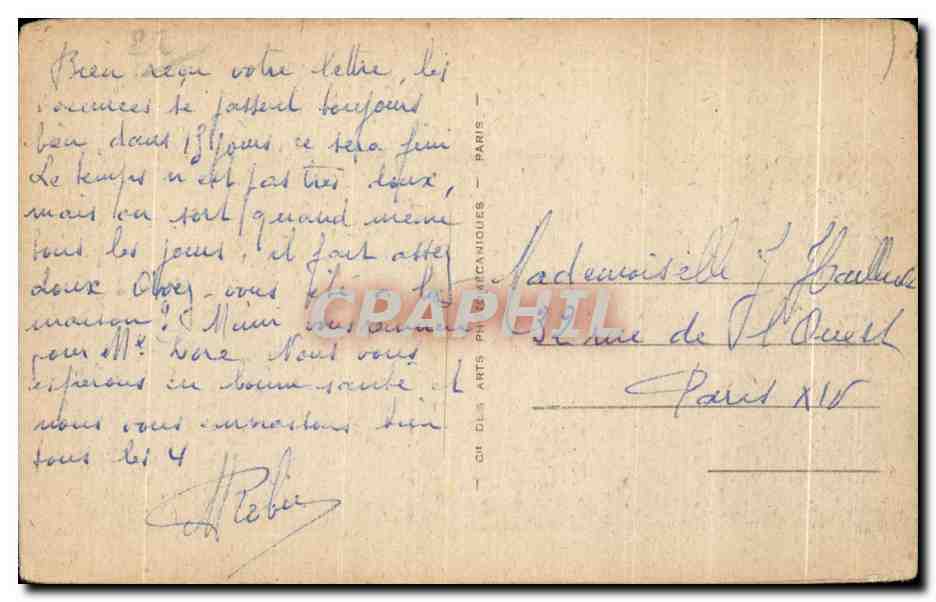 Bien reçu votre lettre, les
vacances se passent toujours
bien, dans 13 jours ce sera fini
Le temps n'est pas très doux,
mais on sort quand même
tous les jours, il fait assez
doux Avez-vous été à la
maison? Mimi
pour Me. Nous vous
espérons en bonne santé et
nous vous embrassons bien
tous les 4
CIE DES ARTS PHOTOMÉCANIQUES — PARIS —
Mademoiselle J
32 rue de l'Ouest
Paris XIV
CRAPHIL